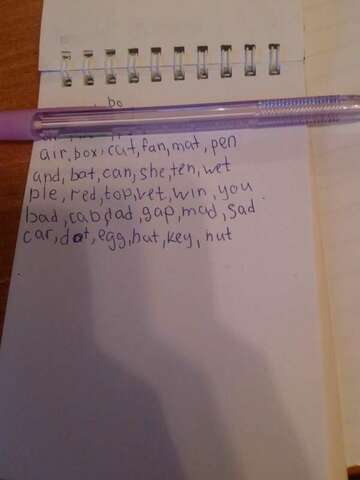 bo
air, box, cut, fan, mat, pen
and, bot, can, she, ten, wet
ple, red, top, vet, win, you
bad, cab, dad, gap, mad, Sad
car, dot, egg, hut, key, nut